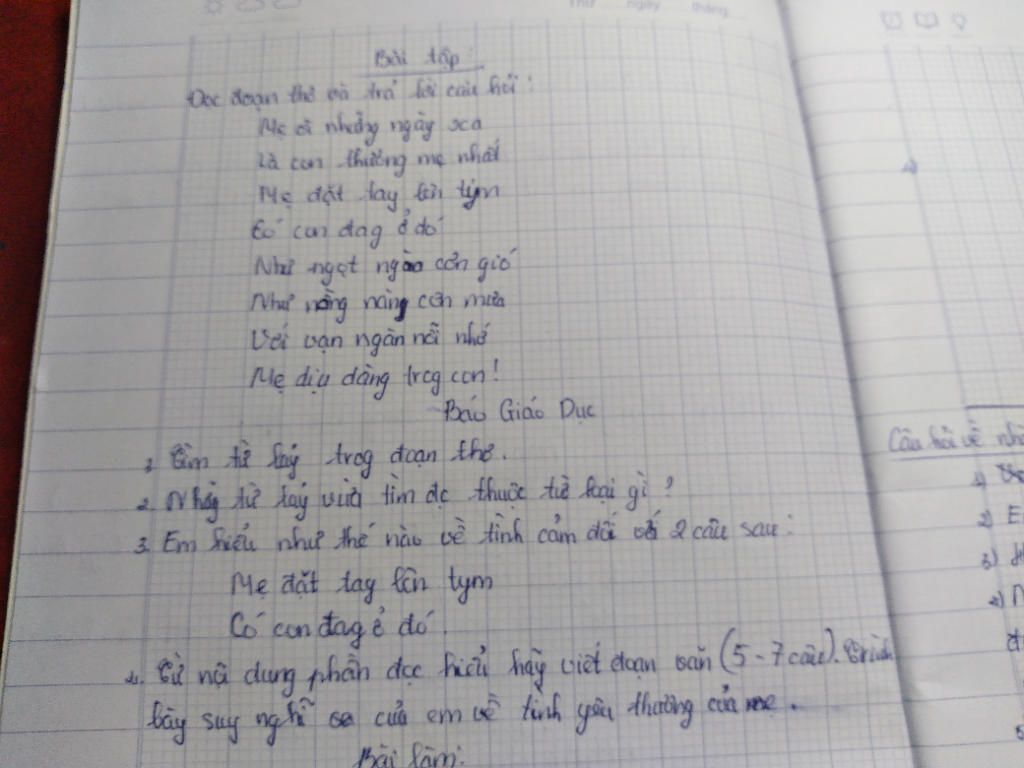 Thứ ngày tháng
Bài tập:
Đọc đoạn thơ và trả lời câu hỏi:
Mẹ ơi những ngày xa
Là con thương mẹ nhất
Mẹ đặt tay lên tym
Có con đag ở đó
Như ngọt ngào cơn gió
Như nồng nàng cơn mưa
Với vạn ngàn nỗi nhớ
Mẹ dịu dàng trog con!
Báo Giáo Dục
1. Tìm từ láy trog đoạn thơ.
2. Nhữg từ láy vừa tìm đc thuộc từ loại gì?
3. Em hiểu như thế nào về tình cảm đối với 2 câu sau:
Mẹ đặt tay lên tym
Có con đag ở đó.
4. Từ nội dung phần đọc hiểu hãy viết đoạn văn (5-7 câu). Trình
bày suy nghĩ của em về tình yêu thương của mẹ.
Bài làm:
Câu hỏi về nhà
1)
2) E
3)
4)